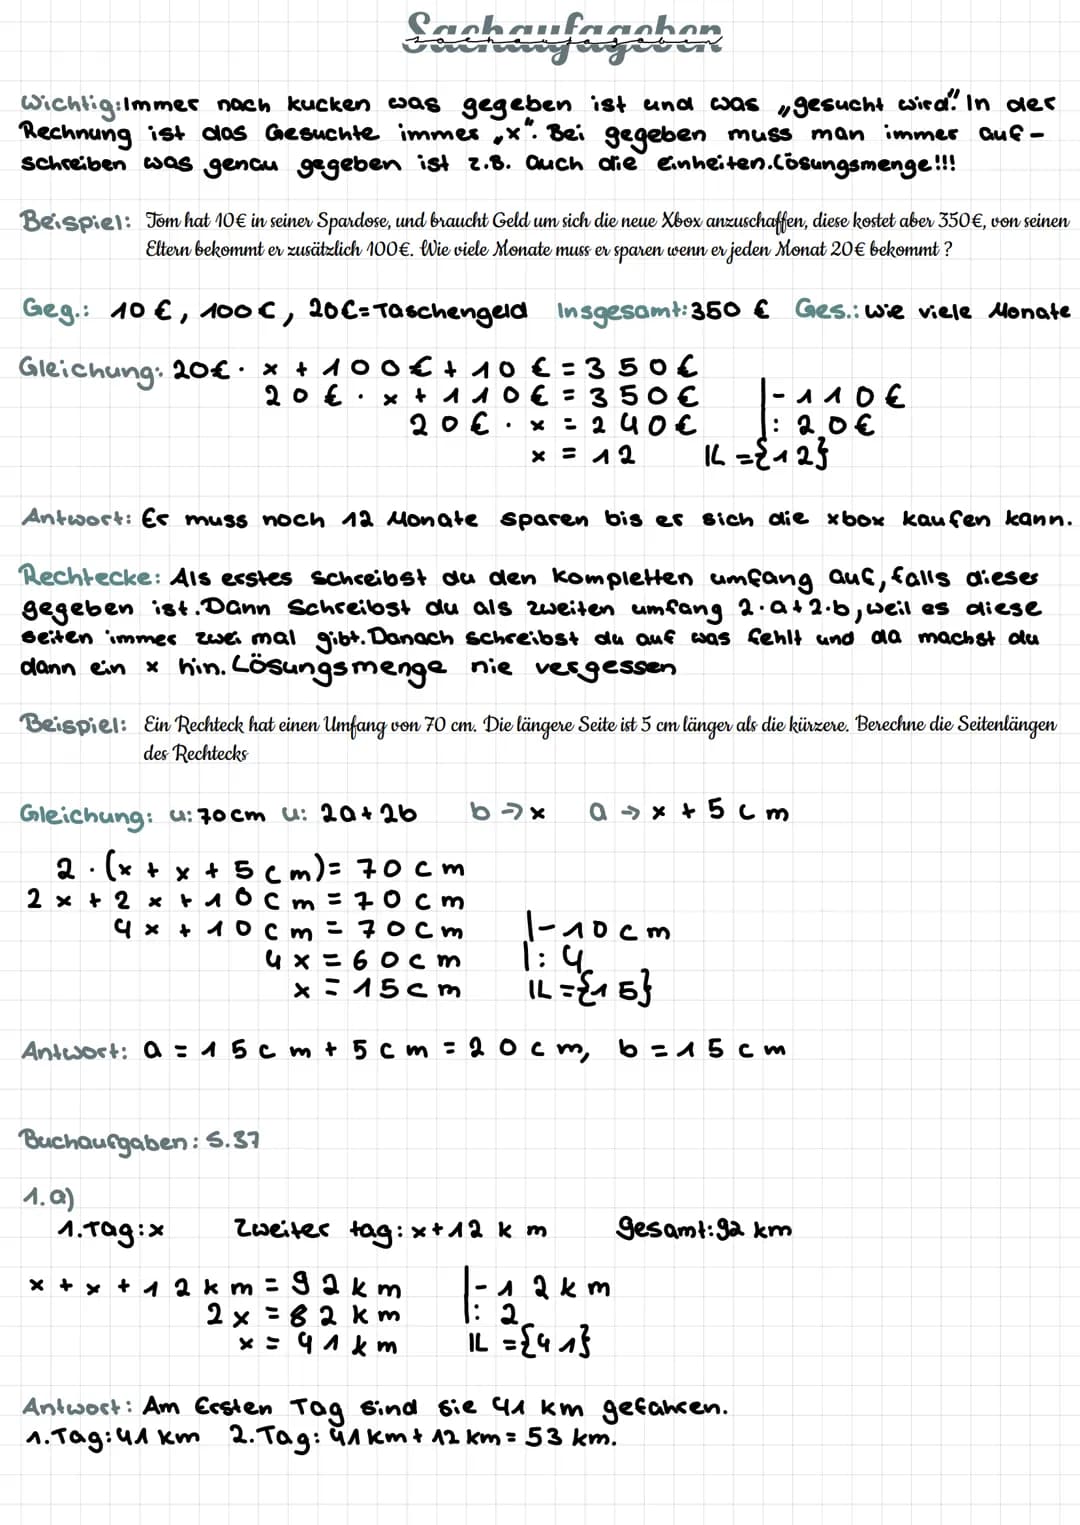 Sachaufageben
Wichtig:Immer nach kucken was gegeben ist und was „gesucht wird". In der
Rechnung ist das Gesuchte immer „x". Bei gegeben muss man immer auf-
schreiben was genau gegeben ist z.B. auch die Einheiten.Lösungsmenge!!!
Beispiel: Tom hat 10€ in seiner Spardose, und braucht Geld um sich die neue Xbox anzuschaffen, diese kostet aber 350€, von seinen
Eltern bekommt er zusätzlich 100€. Wie viele Monate muss er sparen wenn er jeden Monat 20€ bekommt ?
Geg.: 10 €, 100€, 20€=Taschengeld Insgesamt:350 € Ges.: Wie viele Monate
Gleichung: 20€ · x + 100€ + 10 € = 350€
20 € · x + 110€ = 350€ |-110€
20€ · x = 240€ |: 20€
x = 12 IL ={12}
Antwort: Er muss noch 12 Monate sparen bis er sich die xbox kaufen kann.
Rechtecke: Als erstes schreibst du den kompletten umfang auf, falls dieser
gegeben ist.Dann Schreibst du als zweiten umfang 2·a+2·b, weil es diese
seiten immer zwei mal gibt.Danach schreibst du auf was fehlt und da machst du
dann ein x hin. Lösungsmenge nie vergessen
Beispiel: Ein Rechteck hat einen Umfang von 70 cm. Die längere Seite ist 5 cm länger als die kürzere. Berechne die Seitenlängen
des Rechtecks
Gleichung: u:70cm u: 2a+2b b→x a→x + 5 cm
2 · (x + x + 5 cm)= 70 cm
2 x + 2 x + 10 cm = 70 cm
4 x + 10 cm = 70cm |-10cm
4 x = 60cm |: 4
x = 15cm IL={15}
Antwort: a = 15 cm + 5 cm = 20 cm, b = 15 cm
Buchaufgaben: S.37
1.a)
1.Tag:x Zweiter tag: x+12 km gesamt:92 km
x + x + 12 km = 92km |-12km
2x = 82 km |: 2
x = 41 km IL ={41}
Antwort: Am Ersten Tag sind sie 41 km gefahren.
1.Tag:41 km 2.Tag: 41km+ 12 km= 53 km.